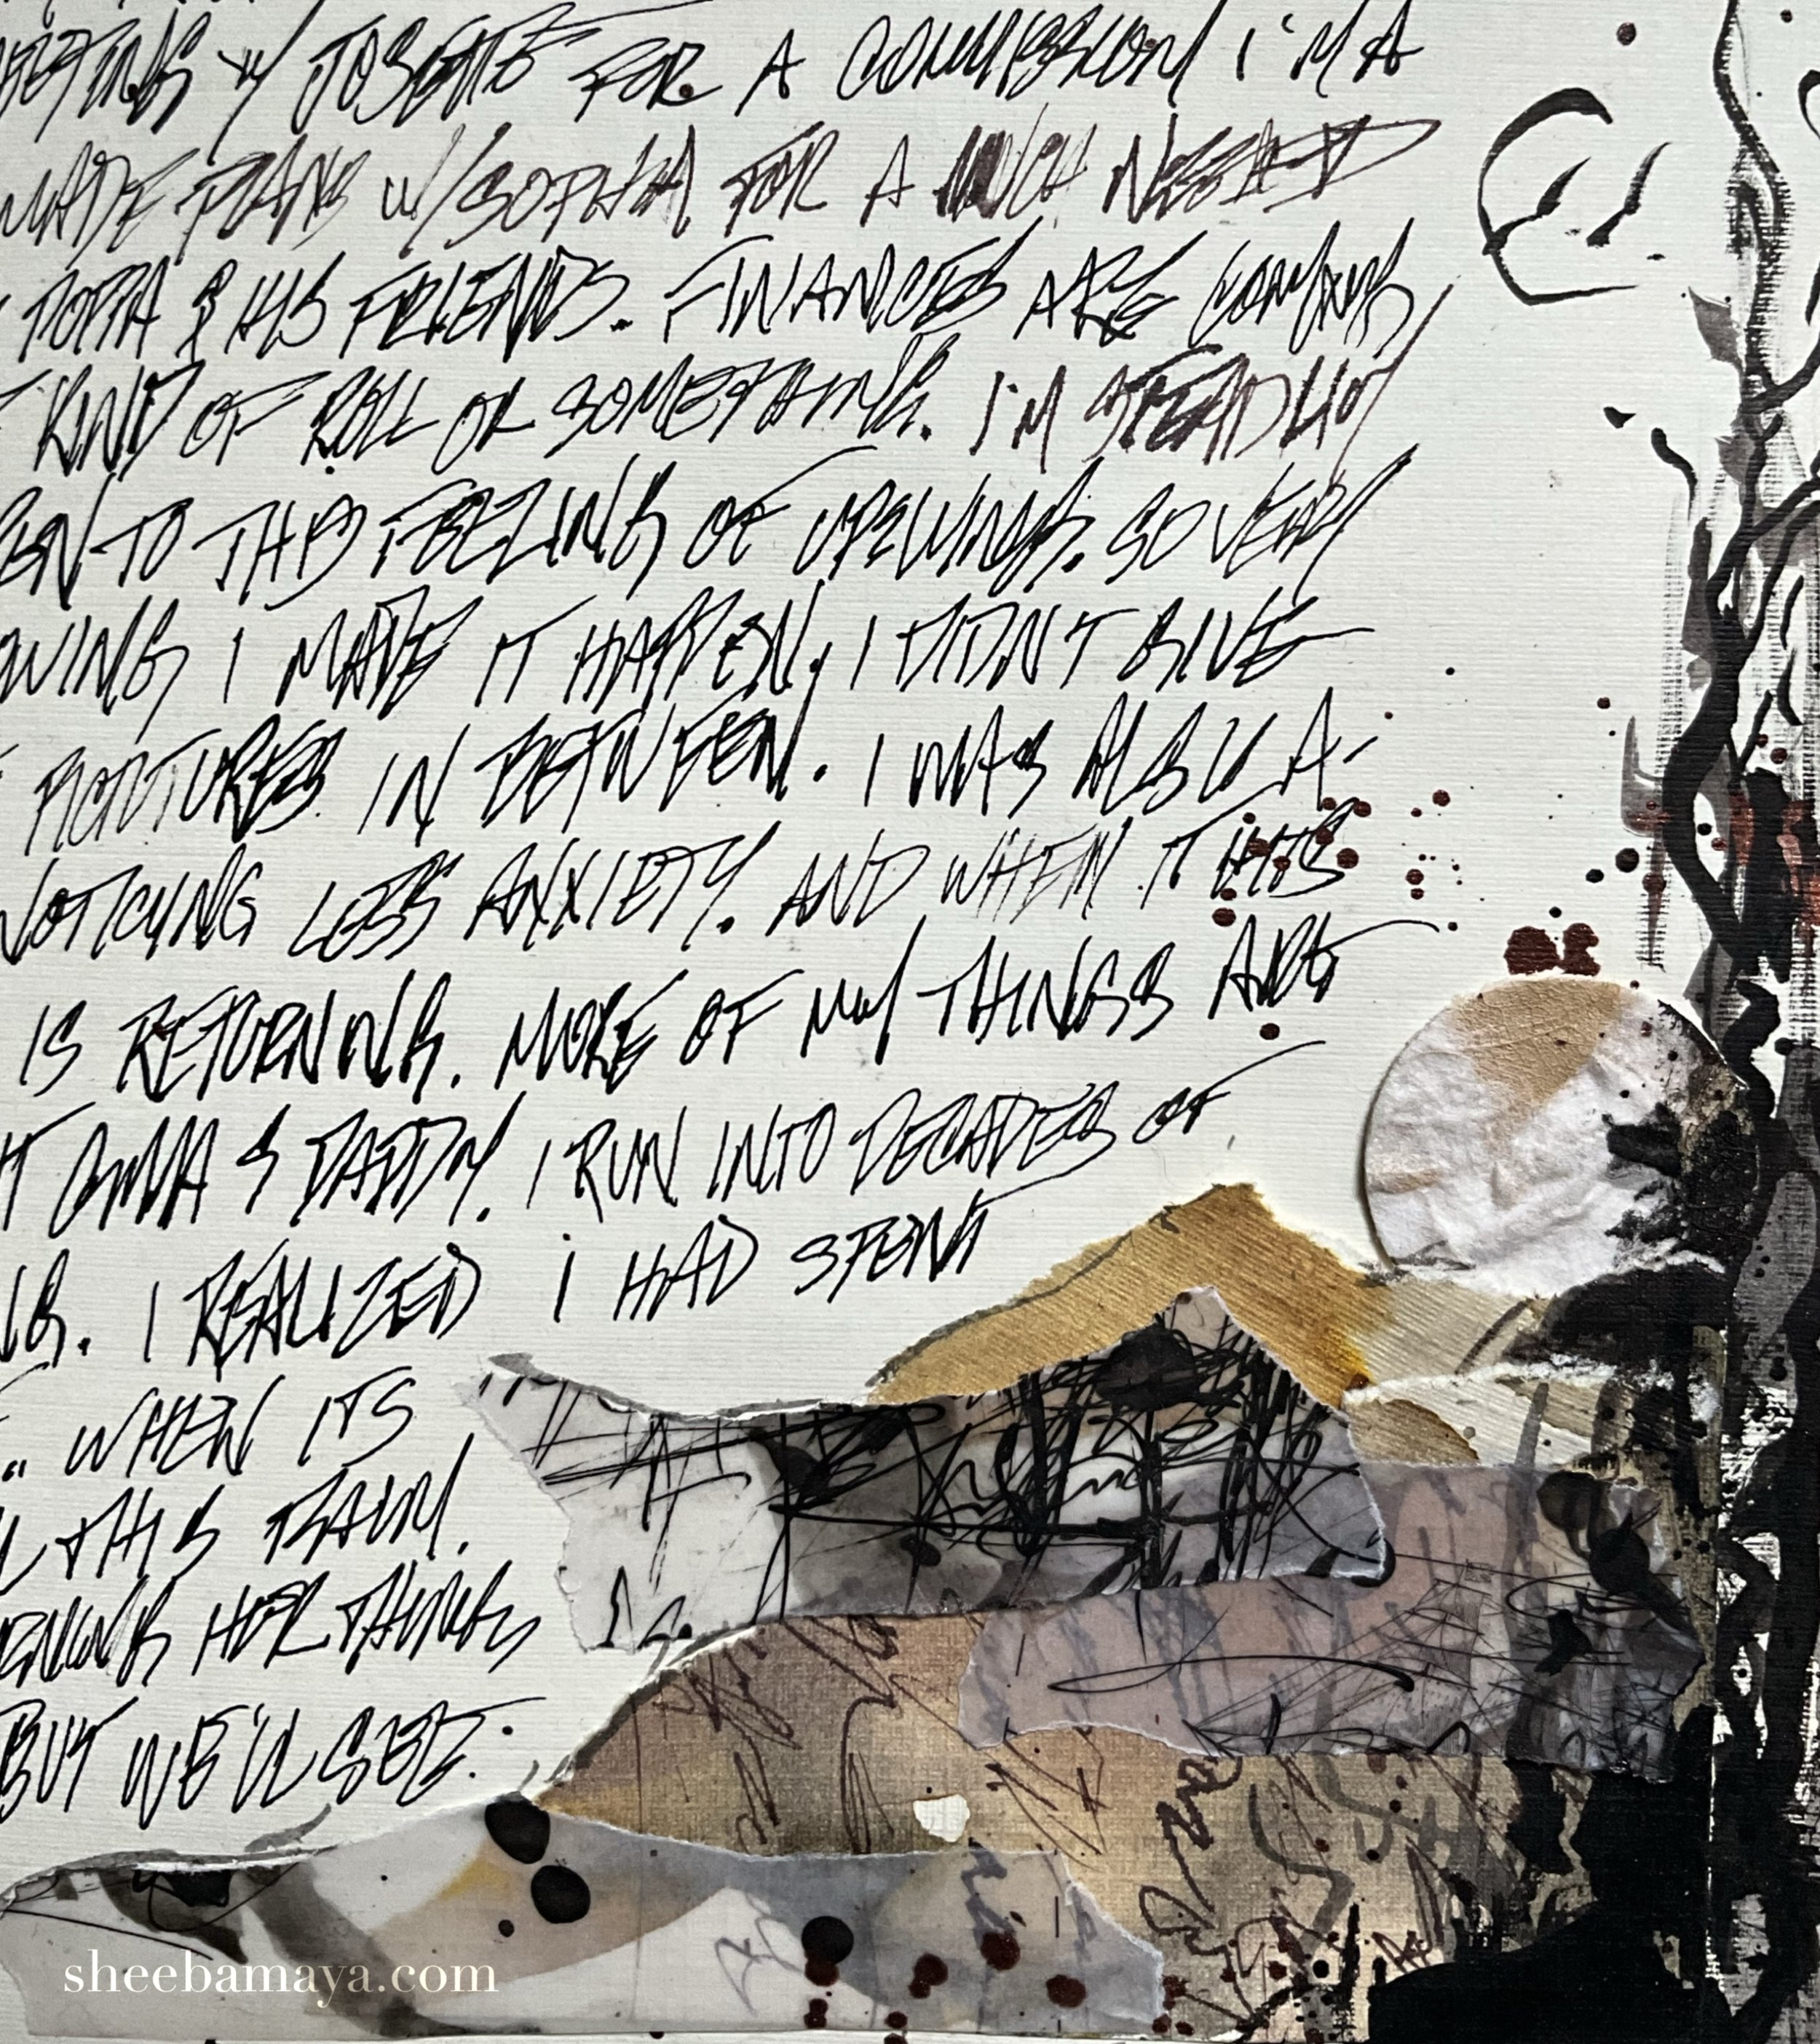 W/ JOSETTE FOR A COMMISSION I'M A
MADE PLANS W/ SOPHIA FOR A MUCH NEEDED
POPPA & HIS FRIENDS. FINANCES ARE COMING
KIND OF ROLL OR SOMETHING. I'M STEADILY
TO THIS FEELING OF UPSWING. SO VERY
I MADE IT HAPPEN. I DIDN'T GIVE
PICTURES IN BETWEEN. I WAS ALSO A-
NOTICING LESS ANXIETY. AND WHEN IT HITS
IS RETURNING. MORE OF MY THINGS ARE
& DADDY. I RUN INTO DECADES OF
I REALIZED I HAD SPENT
WHEN ITS
THIS
HER THINGS
BUT WE'LL SEE.
sheebamaya.com